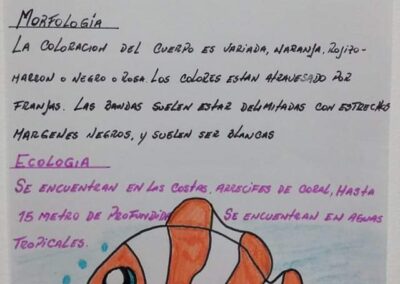 MORFOLOGÍA
LA COLORACION DEL CUERPO ES VARIADA, NARANJA, ROJIZO-
MARRON O NEGRO O ROSA. LOS COLORES ESTAN ATRAVESADO POR
FRANJAS. LAS BANDAS SUELEN ESTAR DELIMITADAS CON ESTRECHOS
MARGENES NEGROS, Y SUELEN SER BLANCAS
ECOLOGIA
SE ENCUENTRAN EN LAS COSTAS, ARRECIFES DE CORAL, HASTA
15 METRO DE PROFUNDIDA SE ENCUENTRAN EN AGUAS
TROPICALES.